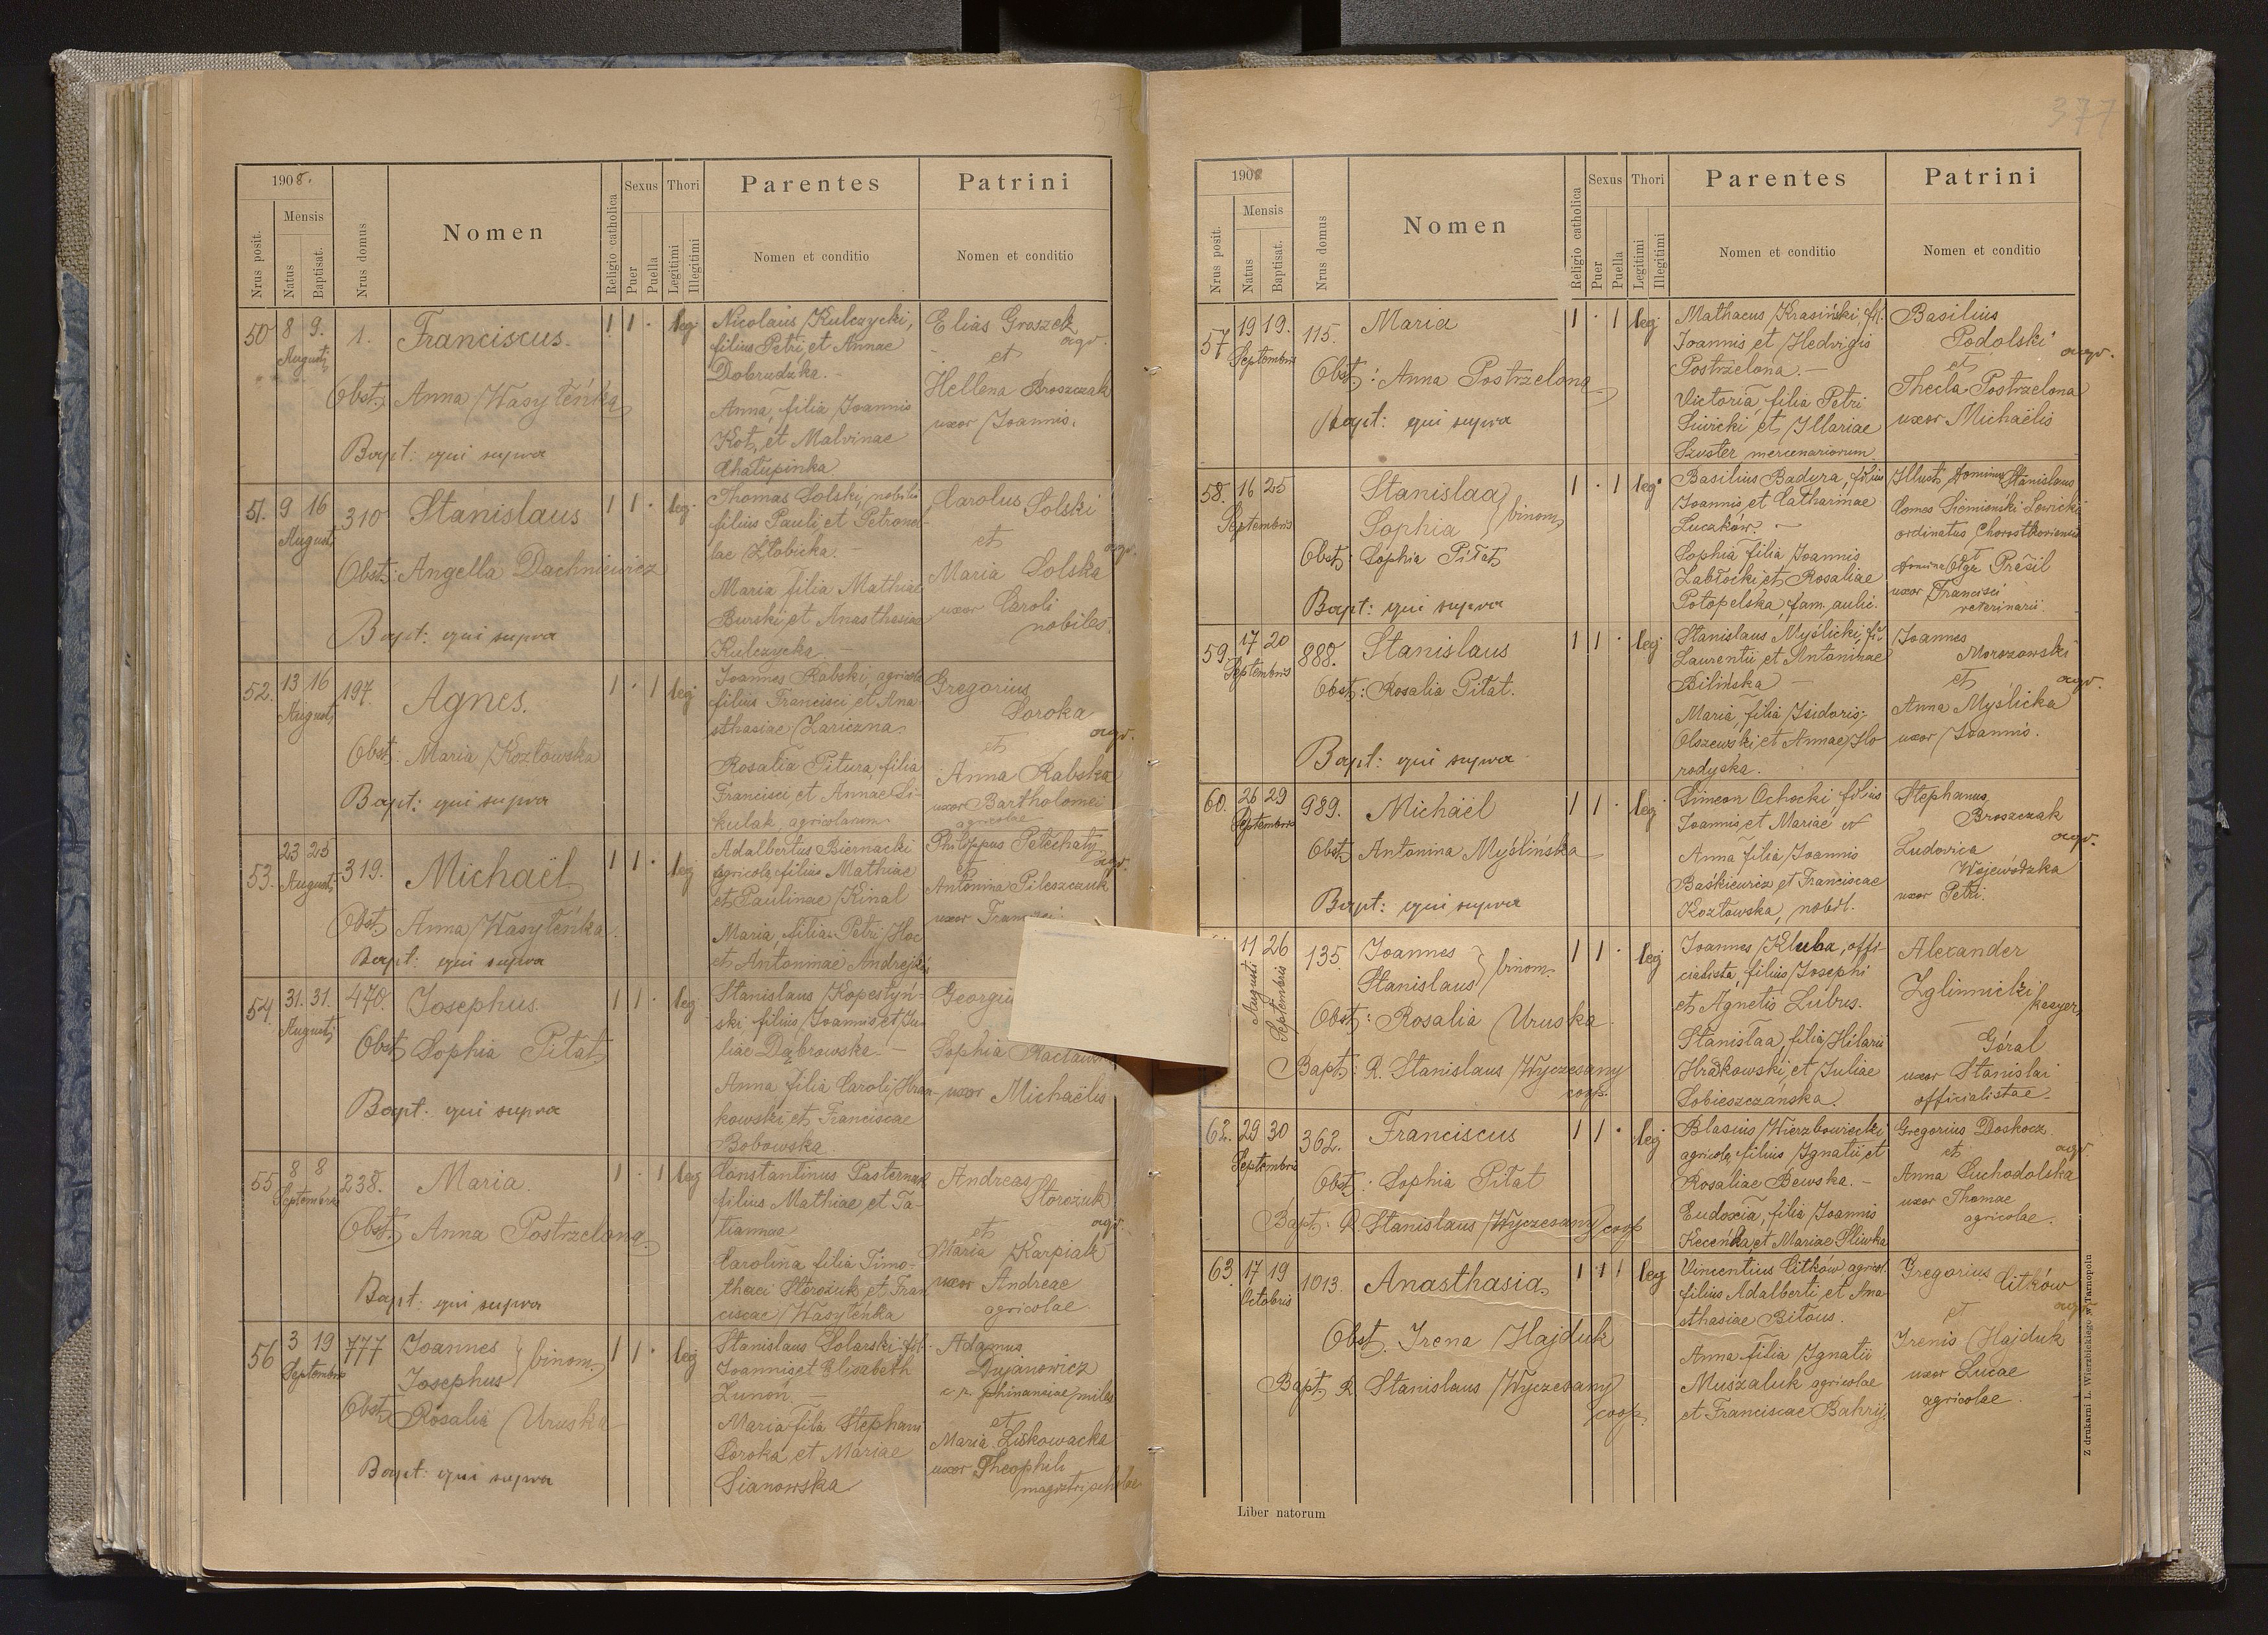 1908.
Nrus posit.
Mensis
Natus
Baptisat.
Nrus domus
Nomen
Religio catholica
Sexus
Puer
Puella
Thori
Legitimi
Illegitimi
Parentes
Nomen et conditio
Patrini
Nomen et conditio
50 8 9. 1. Franciscus. 1 1 · leg.
Augusti
Obst: Anna Wasyleńka
Bapt: qui supra
Nicolaus Kulczycki,
filius Petri et Annae
Dobrudzka. -
Anna, filia Joannis
Kot, et Malvinae
Chałupinka
Elias Groszek
agr.
et
Hellena Broszczak
uxor Joannis.
51. 9 16 310 Stanislaus 1 1 · leg.
Augusti
Obst: Angella Dachniewicz
Bapt: qui supra
Thomas Solski, nobilis
filius Pauli et Petronel-
lae Żłobicka. -
Maria filia Mathiae
Burski, et Anasthasiae
Kulczycka. -
Carolus Solski
et
agr.
Maria Solska
uxor Caroli
nobiles.
52. 13 16 197. Agnes. 1 · 1 leg
Augusti
Obst: Maria Kozłowska
Bapt: qui supra
Joannes Rabski, agricola
filius Francisci et Ana-
sthasiae Zariczna.
Rosalia Pitura, filia
Francisci et Annae Si-
kulak, agricolarum
Gregorius
Soroka
agr.
et
Anna Rabska
uxor Bartholomei
agricolae
53. 23 25 319. Michaël 1 1 · leg
Augusti
Obst: Anna Wasyleńka.
Bapt: qui supra
Adalbertus Biernacki
agricola, filius Mathiae
et Paulinae Kinal
Maria, filia Petri Hoc
et Antoninae Andrejków
Philippus Petechaty
agr.
et
Antonina Pileszczuk
uxor Francisci
54. 31. 31. 470. Josephus. 1 1 · leg
Augusti
Obst: Sophia Pitat
Bapt: qui supra
Stanislaus Kopestyń-
ski filius Joannis et Ju-
liae Dąbrowska. -
Anna filia Caroli Hran-
kowski et Franciscae
Bobowska
Georgiu
Sophia
uxor Michaëlis
55 8 8 238. Maria. 1 · 1 leg
Septembris
Obst: Anna Postrzelona.
Bapt: qui supra
Constantinus Pasternak
filius Mathiae et Ta-
tiannae
Carolina filia Timo-
thaei Storożuk et Fran-
ciscae Wasyleńka
Andreas
Storożuk
agr.
et
Maria Karpiak
uxor Andreae
agricolae.
56 3 19 777 Joannes
Josephus } binom. 1 1 · leg
Septembris
Obst: Rosalia Uruska
Bapt: qui supra
Stanislaus Solarski fil.
Joannis et Elisabeth
Zunoń -
Maria filia Stephani
Soroka et Mariae
Sianowska
Adamus
Dujanowicz
miles
et
Maria Liskowacka
uxor Theophili
magistri scholae
377
1908
Nrus posit.
Mensis
Natus
Baptisat.
Nrus domus
Nomen
Religio catholica
Sexus
Puer
Puella
Thori
Legitimi
Illegitimi
Parentes
Nomen et conditio
Patrini
Nomen et conditio
57 19 19. 115. Maria 1 · 1 leg
Septembris
Obst: Anna Postrzelona
Bapt: qui supra
Mathaeus Krasiński, fil.
Joannis et Hedvigis
Postrzelona. -
Victoria, filia Petri
Siwicki et Illariae
Szuster mercenariorum.
Basilius
Podolski
agr.
et
Thecla Postrzelona
uxor Michaëlis
58. 16 25 Stanislaa
Sophia } binom. 1 · 1 leg
Septembris
Obst: Sophia Pitat
Bapt: qui supra
Basilius Badyra, filius
Joannis et Catharinae
Lucaków -
Sophia filia Joannis
Zabłocki et Rosaliae
Potopelska, fam. aulic.
Illust. Dominus Stanislaus
Comes Siemieński Lewicki
ordinatus Chorostkoviensis
et
Domina Olga Prašil
uxor Francisci
veterinarii.
59. 17 20 888. Stanislaus 1 1 · leg
Septembris
Obst: Rosalia Pitat.
Bapt: qui supra
Stanislaus Myślicki, fil.
Laurentii et Antoninae
Bilińska -
Maria, filia Isidoris
Olszewski et Annae Ho-
rodyska.
Joannes
Morozowski
et
agr.
Anna Myślicka
uxor Joannis.
60. 26 29 989. Michaël 1 1 · leg
Septembris
Obst: Antonina Myślińska
Bapt: qui supra
Simeon Ochocki, filius
Joannis et Mariae N
Anna filia Joannis
Baśkiewicz et Franciscae
Kozłowska, nobil.
Stephanus
Broszczak
agr.
Ludovica
Wojewódzka
uxor Petri.
11 26 135. Joannes
Stanislaus } binom. 1 1 · leg
Augusti
Septembris
Obst: Rosalia Uruska.
Bapt: R. Stanislaus Wyczesany
coop.
Joannes Kluba, offi-
cialista, filius Josephi
et Agnetis Lubus.
Stanislaa, filia Hilarii
Hrabkowski, et Juliae
Sobieszczańska.
Alexander
Zglinnicki
kasyer.
Góral
uxor Stanislai
officialistae.
62. 29 30 362. Franciscus 1 1 · leg
Septembris
Obst: Sophia Pitat
Bapt: R. Stanislaus Wyczesany coop
Blasius Wierzbowiecki
agricola, filius Ignatii et
Rosaliae Bewska. -
Eudoxia, filia Joannis
Keceńka et Mariae Śliwka
Gregorius Doskocz.
et
agr.
Anna Suchodolska
uxor Thomae
agricolae.
63. 17 19 1013. Anasthasia. 1 1 1 leg
Octobris
Obst. Irena Hajduk
Bapt. R. Stanislaus Wyczesany
coop.
Vincentius Citków agricol.
filius Adalberti et Ana-
sthasiae Bitous.
Anna filia Ignatii
Muszaluk agricolae
et Franciscae Bahrij.
Gregorius Citków
agr.
et
Irenis Hajduk
uxor Lucae
agricolae.
Liber natorum
Z drukarni L. Wierzbickiego w Tarnopolu